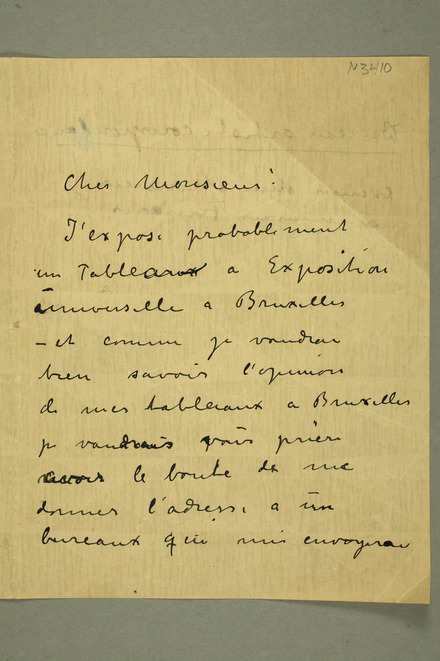 N3410
Cher Monsieur!
J'expose probablement
un Tableaux a Exposition
universelle a Bruxelles
– et comme je voudrai
bien savoir l'opinion
de mes tableaux a Bruxelles
je voudrais vous prier
avoir le bonte de me
donner l'adresse a un
bureaux qui mis envoyerai